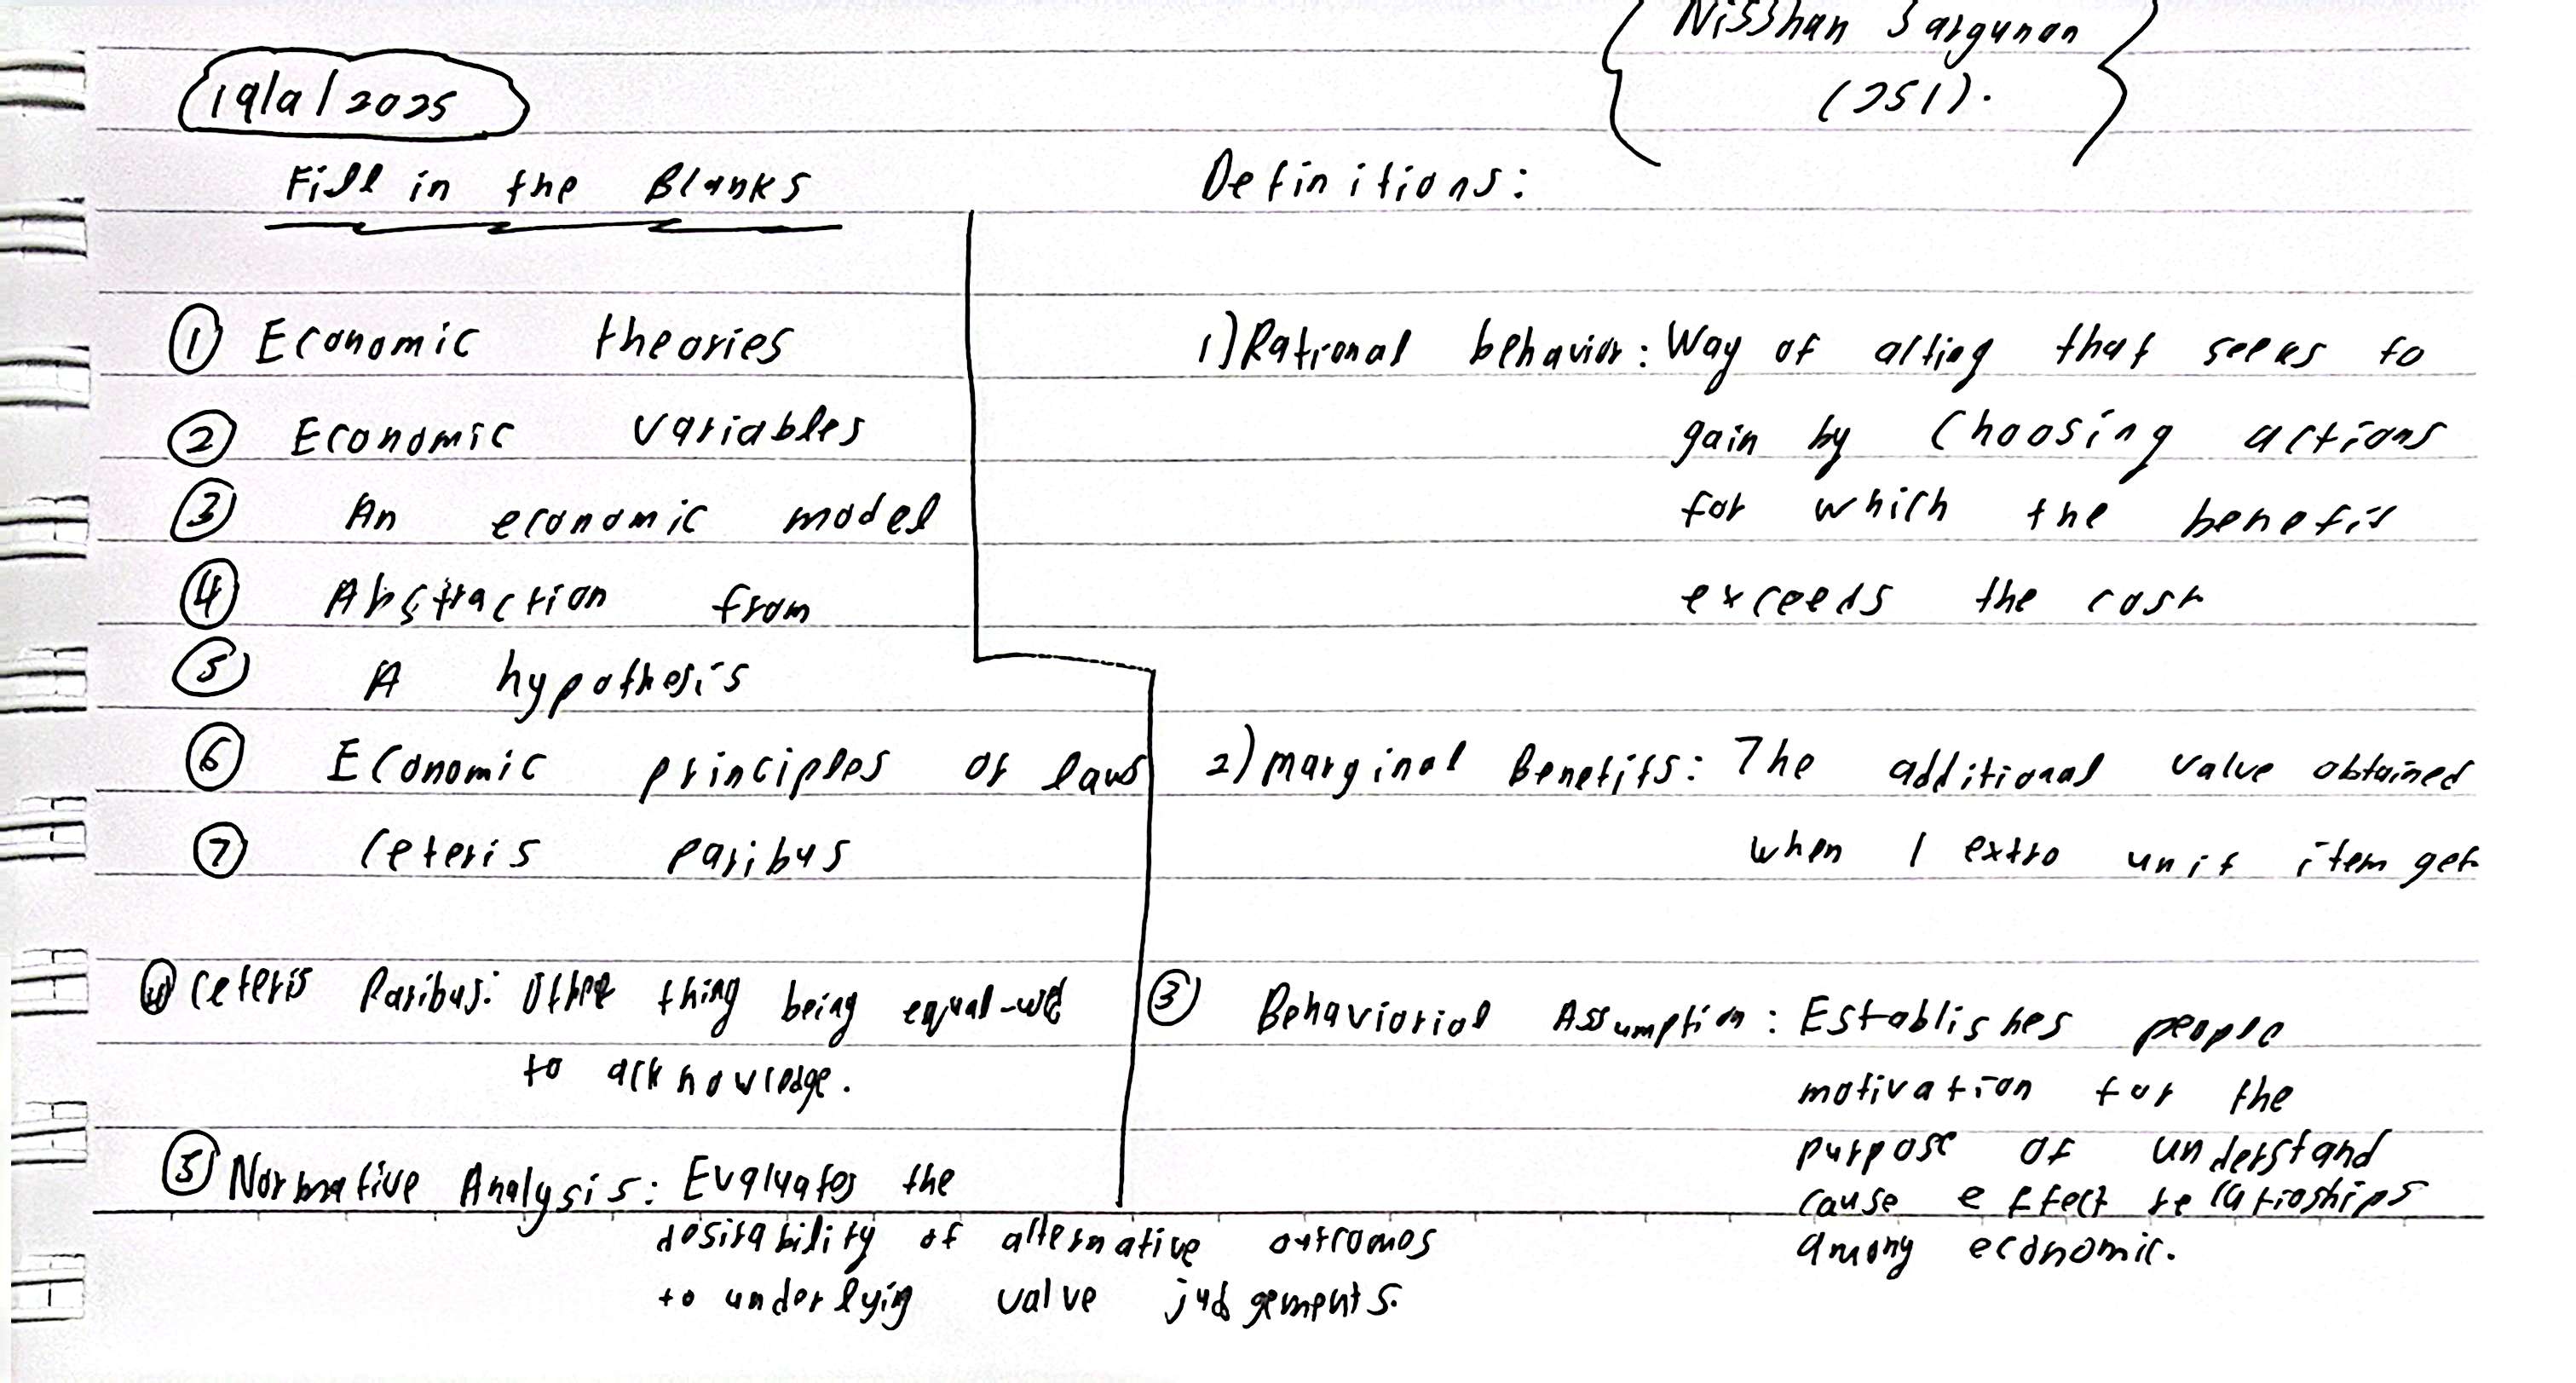 Nisshan Sargunan
(251).
19/9/2025
Fill in the Blanks
① Economic theories
② Economic variables
③ An economic model
④ Abstraction from
⑤ A hypothesis
⑥ Economic principles or laws
⑦ Ceteris paribus
Definitions:
1) Rational behavior: Way of acting that seeks to
gain by choosing actions
for which the benefit
exceeds the cost
2) Marginal Benefits: The additional value obtained
when 1 extra unit item get
③ Behaviorial Assumption: Establishes people
motivation for the
purpose of understand
cause effect relatioships
among economic.
④ Ceteris Paribus: Other thing being equal-
to acknowledge.
⑤ Normative Analysis: Evaluates the
desirability of alternative outcomes
to underlying value judgements.